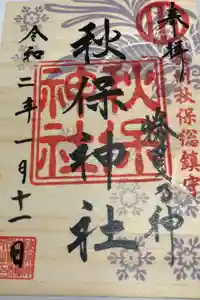 奉拝
秋保総鎮守
秋保神社
秋保神社
令和二年一月十一日